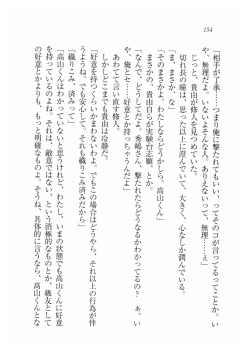 154
「相手が了承……つまり俺に撃たれてもいいって、そのコが言ってるってことか。い
や、無理だよ、いないよそんな人。ありえないって、無理……ぇ」
じっと、貴由が修人を見つめていた。
切れ長の瞳は、思った以上に澄んでいて、大きく、心なしか潤んでいる。
「ま、まさかな」
「そのまさかよ。わたしならどうかしら、高山くん」
まさかの、貴由自らが実験台志願、とか。
「なんで、どうしてだよ。秀嶋さん、撃たれたらどうなるかわかってるの？　あ、い
や、もしかして……好意とか持っちゃうんだよ」
あわてて言い直す修人。
しかしどこまでも貴由は冷静だ。
「好意を持つくらいかまわないわよ。でもこの場合はどうやら、それ以上の行為が伴
うようね。でも安心して。それも織りこみ済みだから」
「織りこみ、済みって……」
「高山くんはわかっていないと思うけれど、わたし、いまの状態でも高山くんに好意
を持っているのよね。それは、敵意ではない、という消極的なものとか、級友として
の好意とかよりも、もっと明確なものよ。そうね、具体的に言うなら、高山くんとな